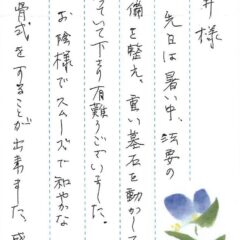 井 様
先日は暑い中、法要の
備を整え。重い墓石を動かして
いて下さり有難うございました。
お陰様でスムーズで和やかな
骨式をすることが出来ました。感